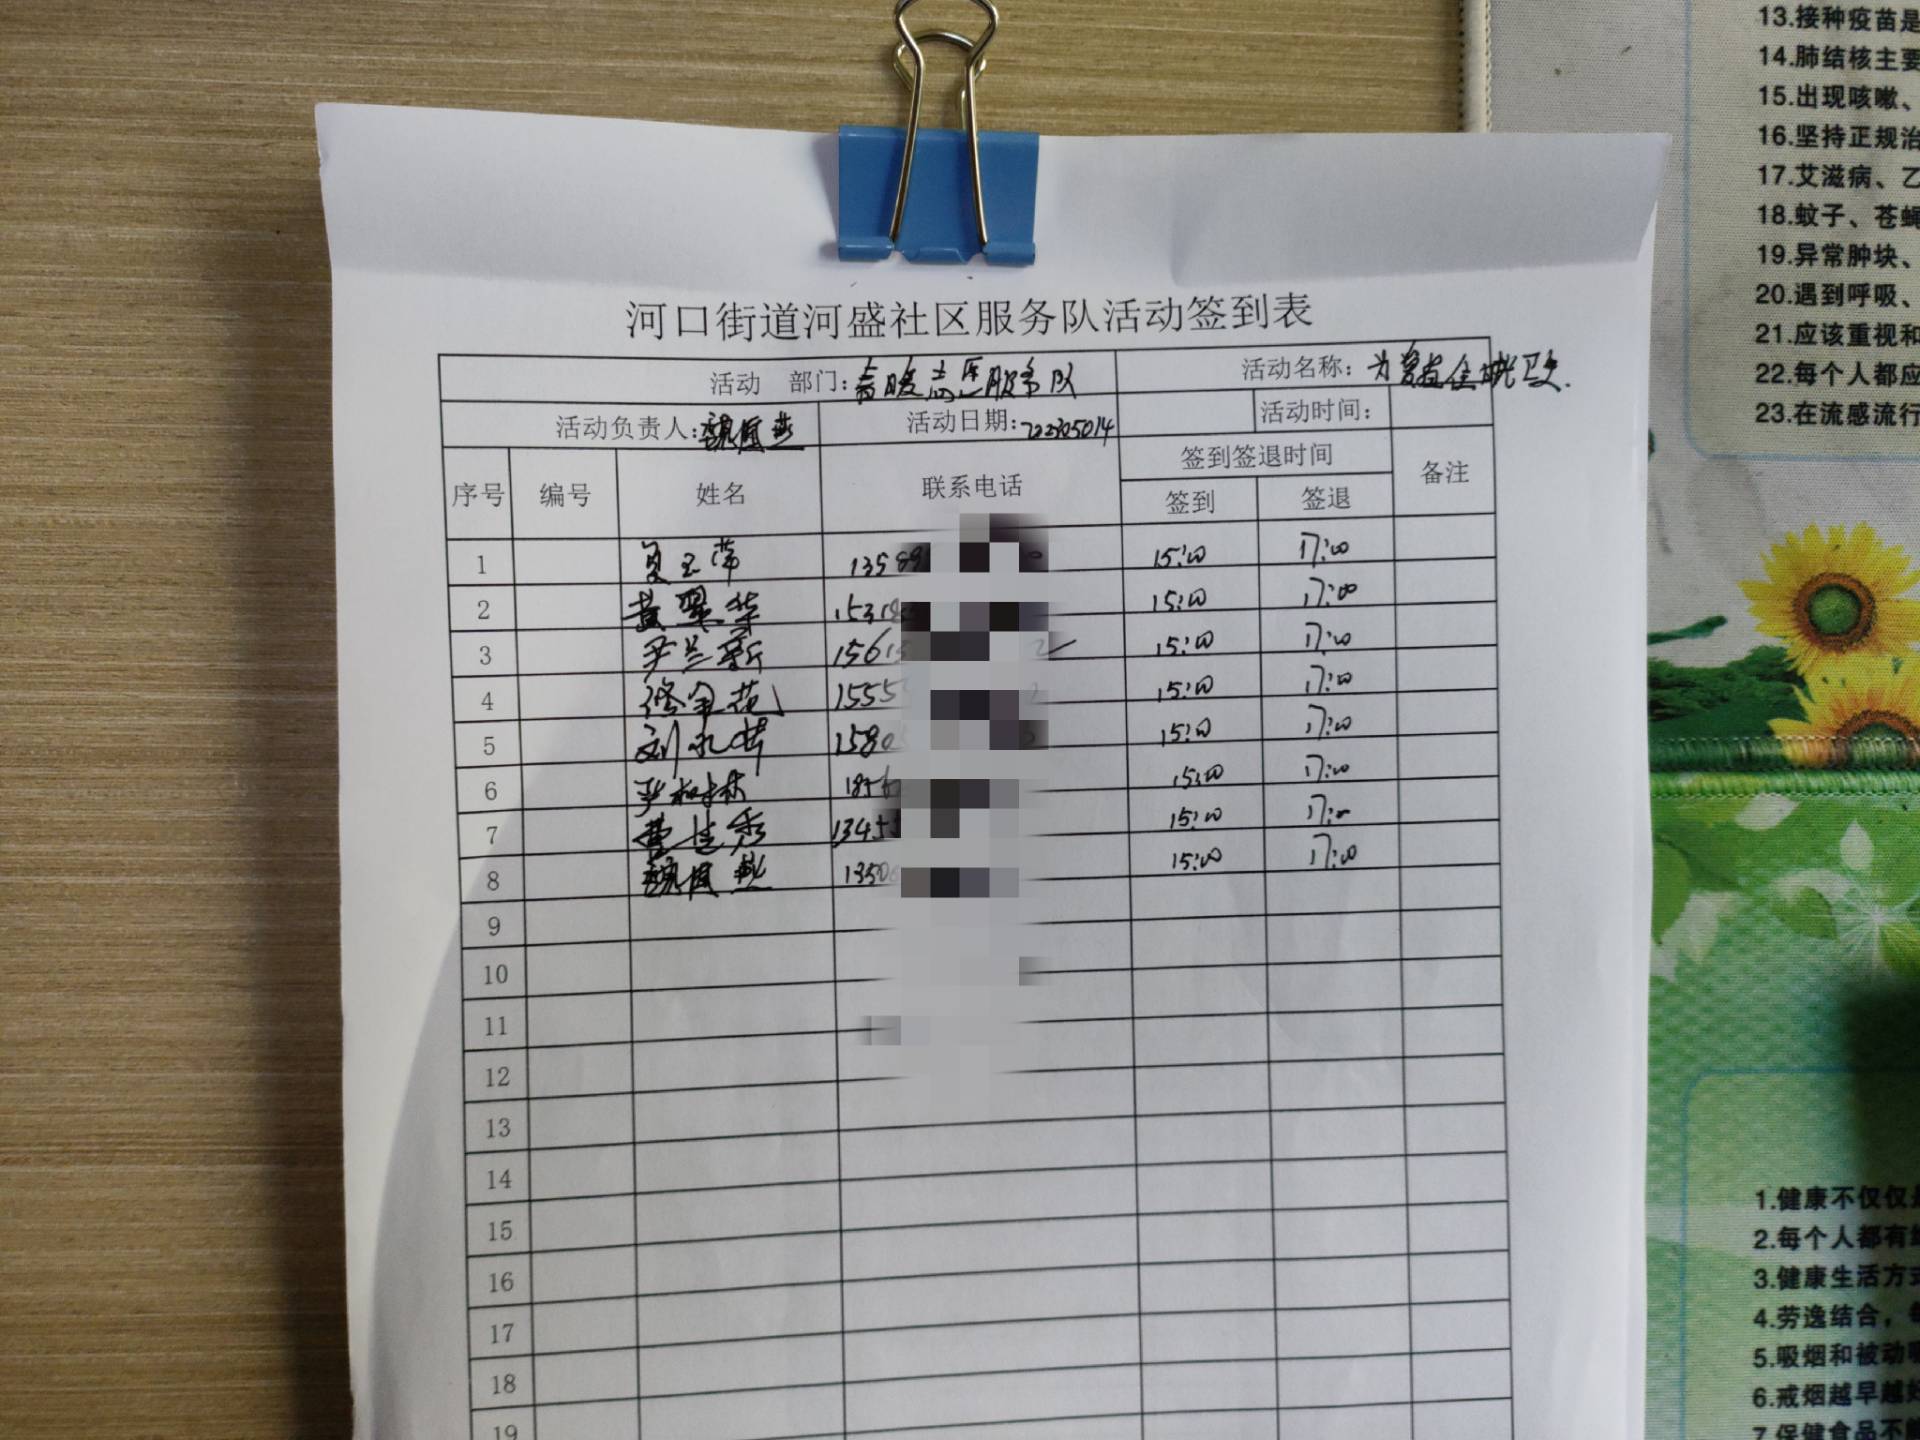 河口街道河盛社区服务队活动签到表
活动 部门: 服务队 活动名称: 为
活动负责人: 魏凤燕 活动日期: 活动时间:
序号 编号 姓名 联系电话 签到签退时间 备注
签到 签退
1 135 15:00 17:00
2 黄翠华 153 15:00 17:00
3 尹兰新 1561 15:00 17:00
4 修金花 1555 15:00 17:00
5 刘 1580 15:00 17:00
6 15:00 17:00
7 曹 秀 1345 15:00 17:00
8 魏凤燕 1350 15:00 17:00
9
10
11
12
13
14
15
16
17
18
19
13.接种疫苗是
14.肺结核主要
15.出现咳嗽、
16.坚持正规治
17.艾滋病、乙
18.蚊子、苍蝇
19.异常肿块、
20.遇到呼吸、
21.应该重视和
22.每个人都应
23.在流感流行
1.健康不仅仅是
2.每个人都有
3.健康生活方式
4.劳逸结合，
5.吸烟和被动吸
6.戒烟越早越好
7.保健食品不能